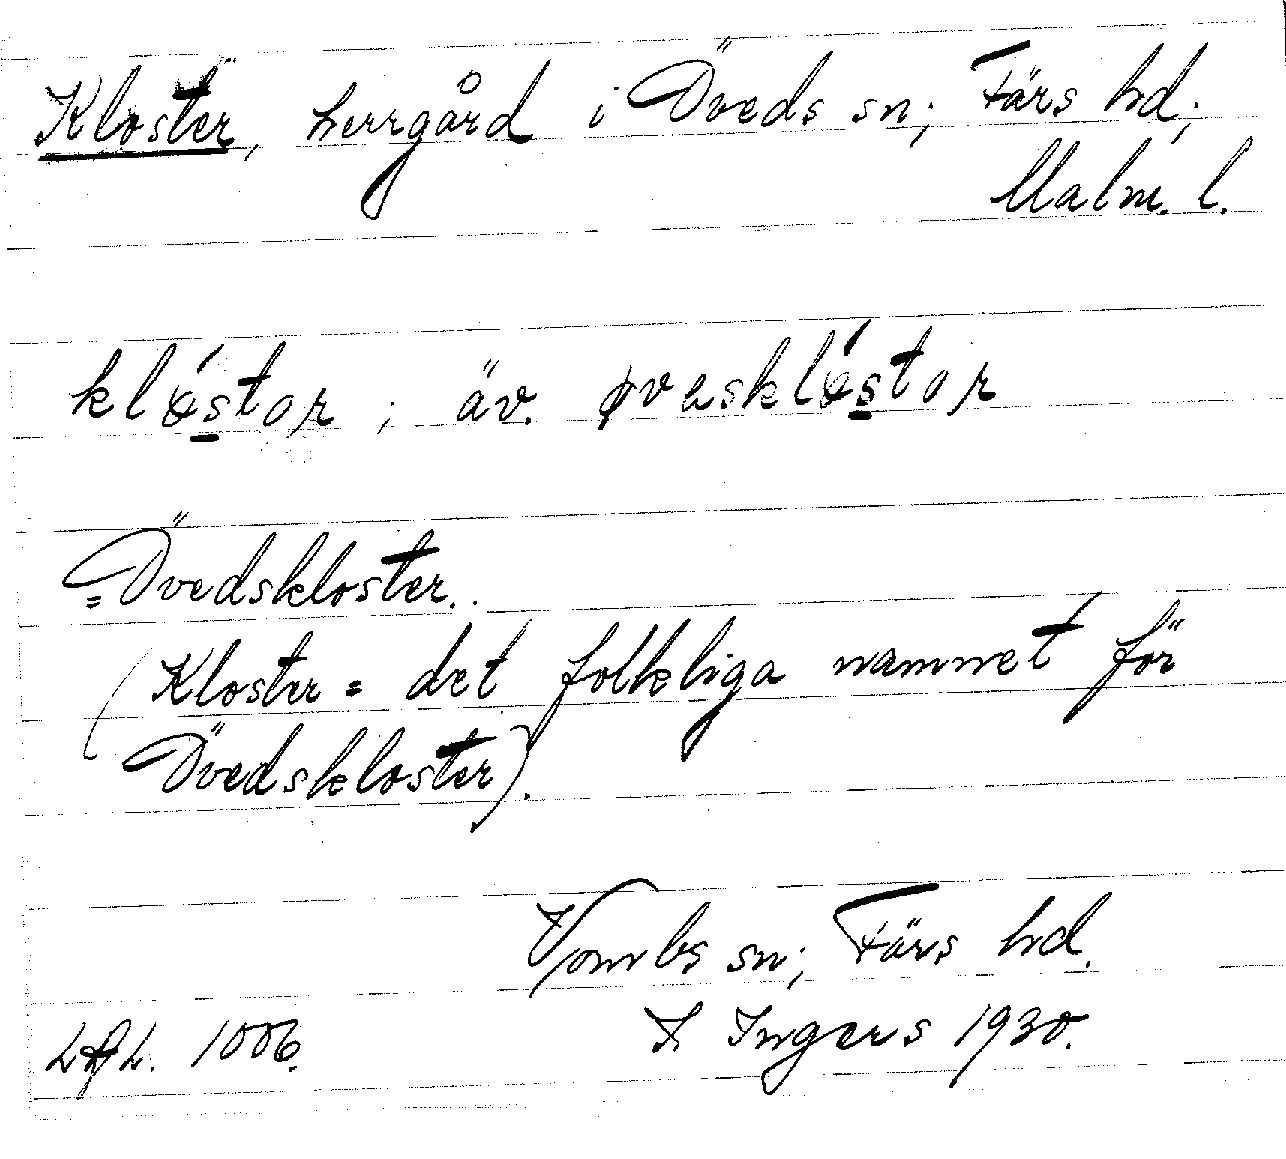 Kloster, herrgård i Öveds sn; Färs hd;
Malm. l.
klóstor; äv. øvasklóstor
= Övedskloster.
(Kloster = det folkliga namnet för
Övedskloster).
Vombs sn; Färs hd.
I Ingers 1930.
1006.